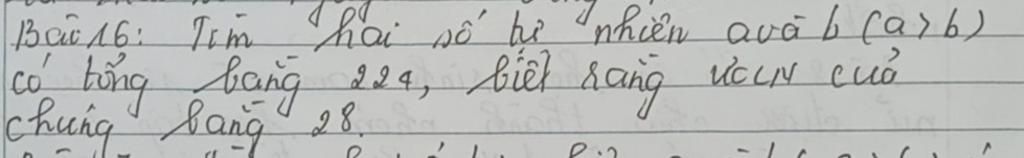 Bài 16: Tìm hai số tự nhiên a và b (a > b)
có tổng bằng 224, biết rằng ƯCLN của
chúng bằng 28.